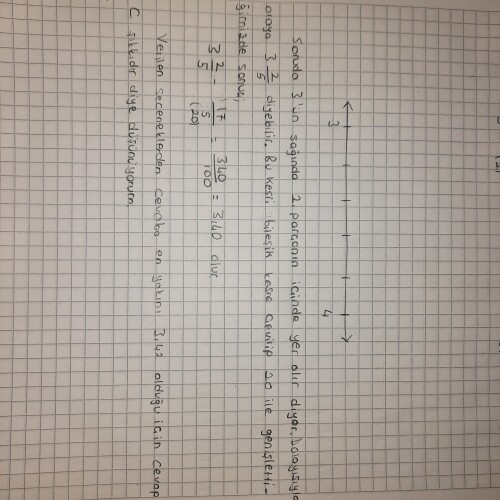 3 4
Soruda 3'ün sağında 2. parçanın içinde yer alır diyor. Dolayısıyla
oraya 3 2/5 diyebilir. Bu kesri bileşik kesre çevirip 20 ile genişletti-
ğimizde sonuç;
3 2/5 - 17/5 = 340/100 = 3,40 olur.
(20)
Verilen seçeneklerden cevaba en yakını 3,42 olduğu için cevap
C şıkkıdır diye düşünüyorum.